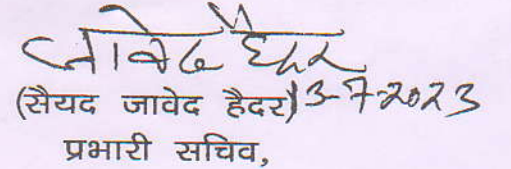 जावेद हैदर
(सैयद जावेद हैदर) 3-7-2023
प्रभारी सचिव,